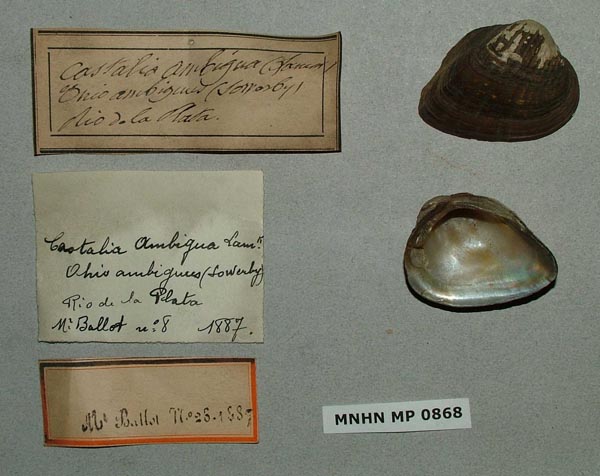 Castalia ambigua (Lamck)
Ohio ambigues (Sowerby)
Rio de la Plata.
Castalia Ambigua Lamk.
Ohio ambigues (Sowerby)
Rio de la Plata
Mr Ballot no: 8 1887.
Mr Ballot No 28-1887
MNHN MP 0868